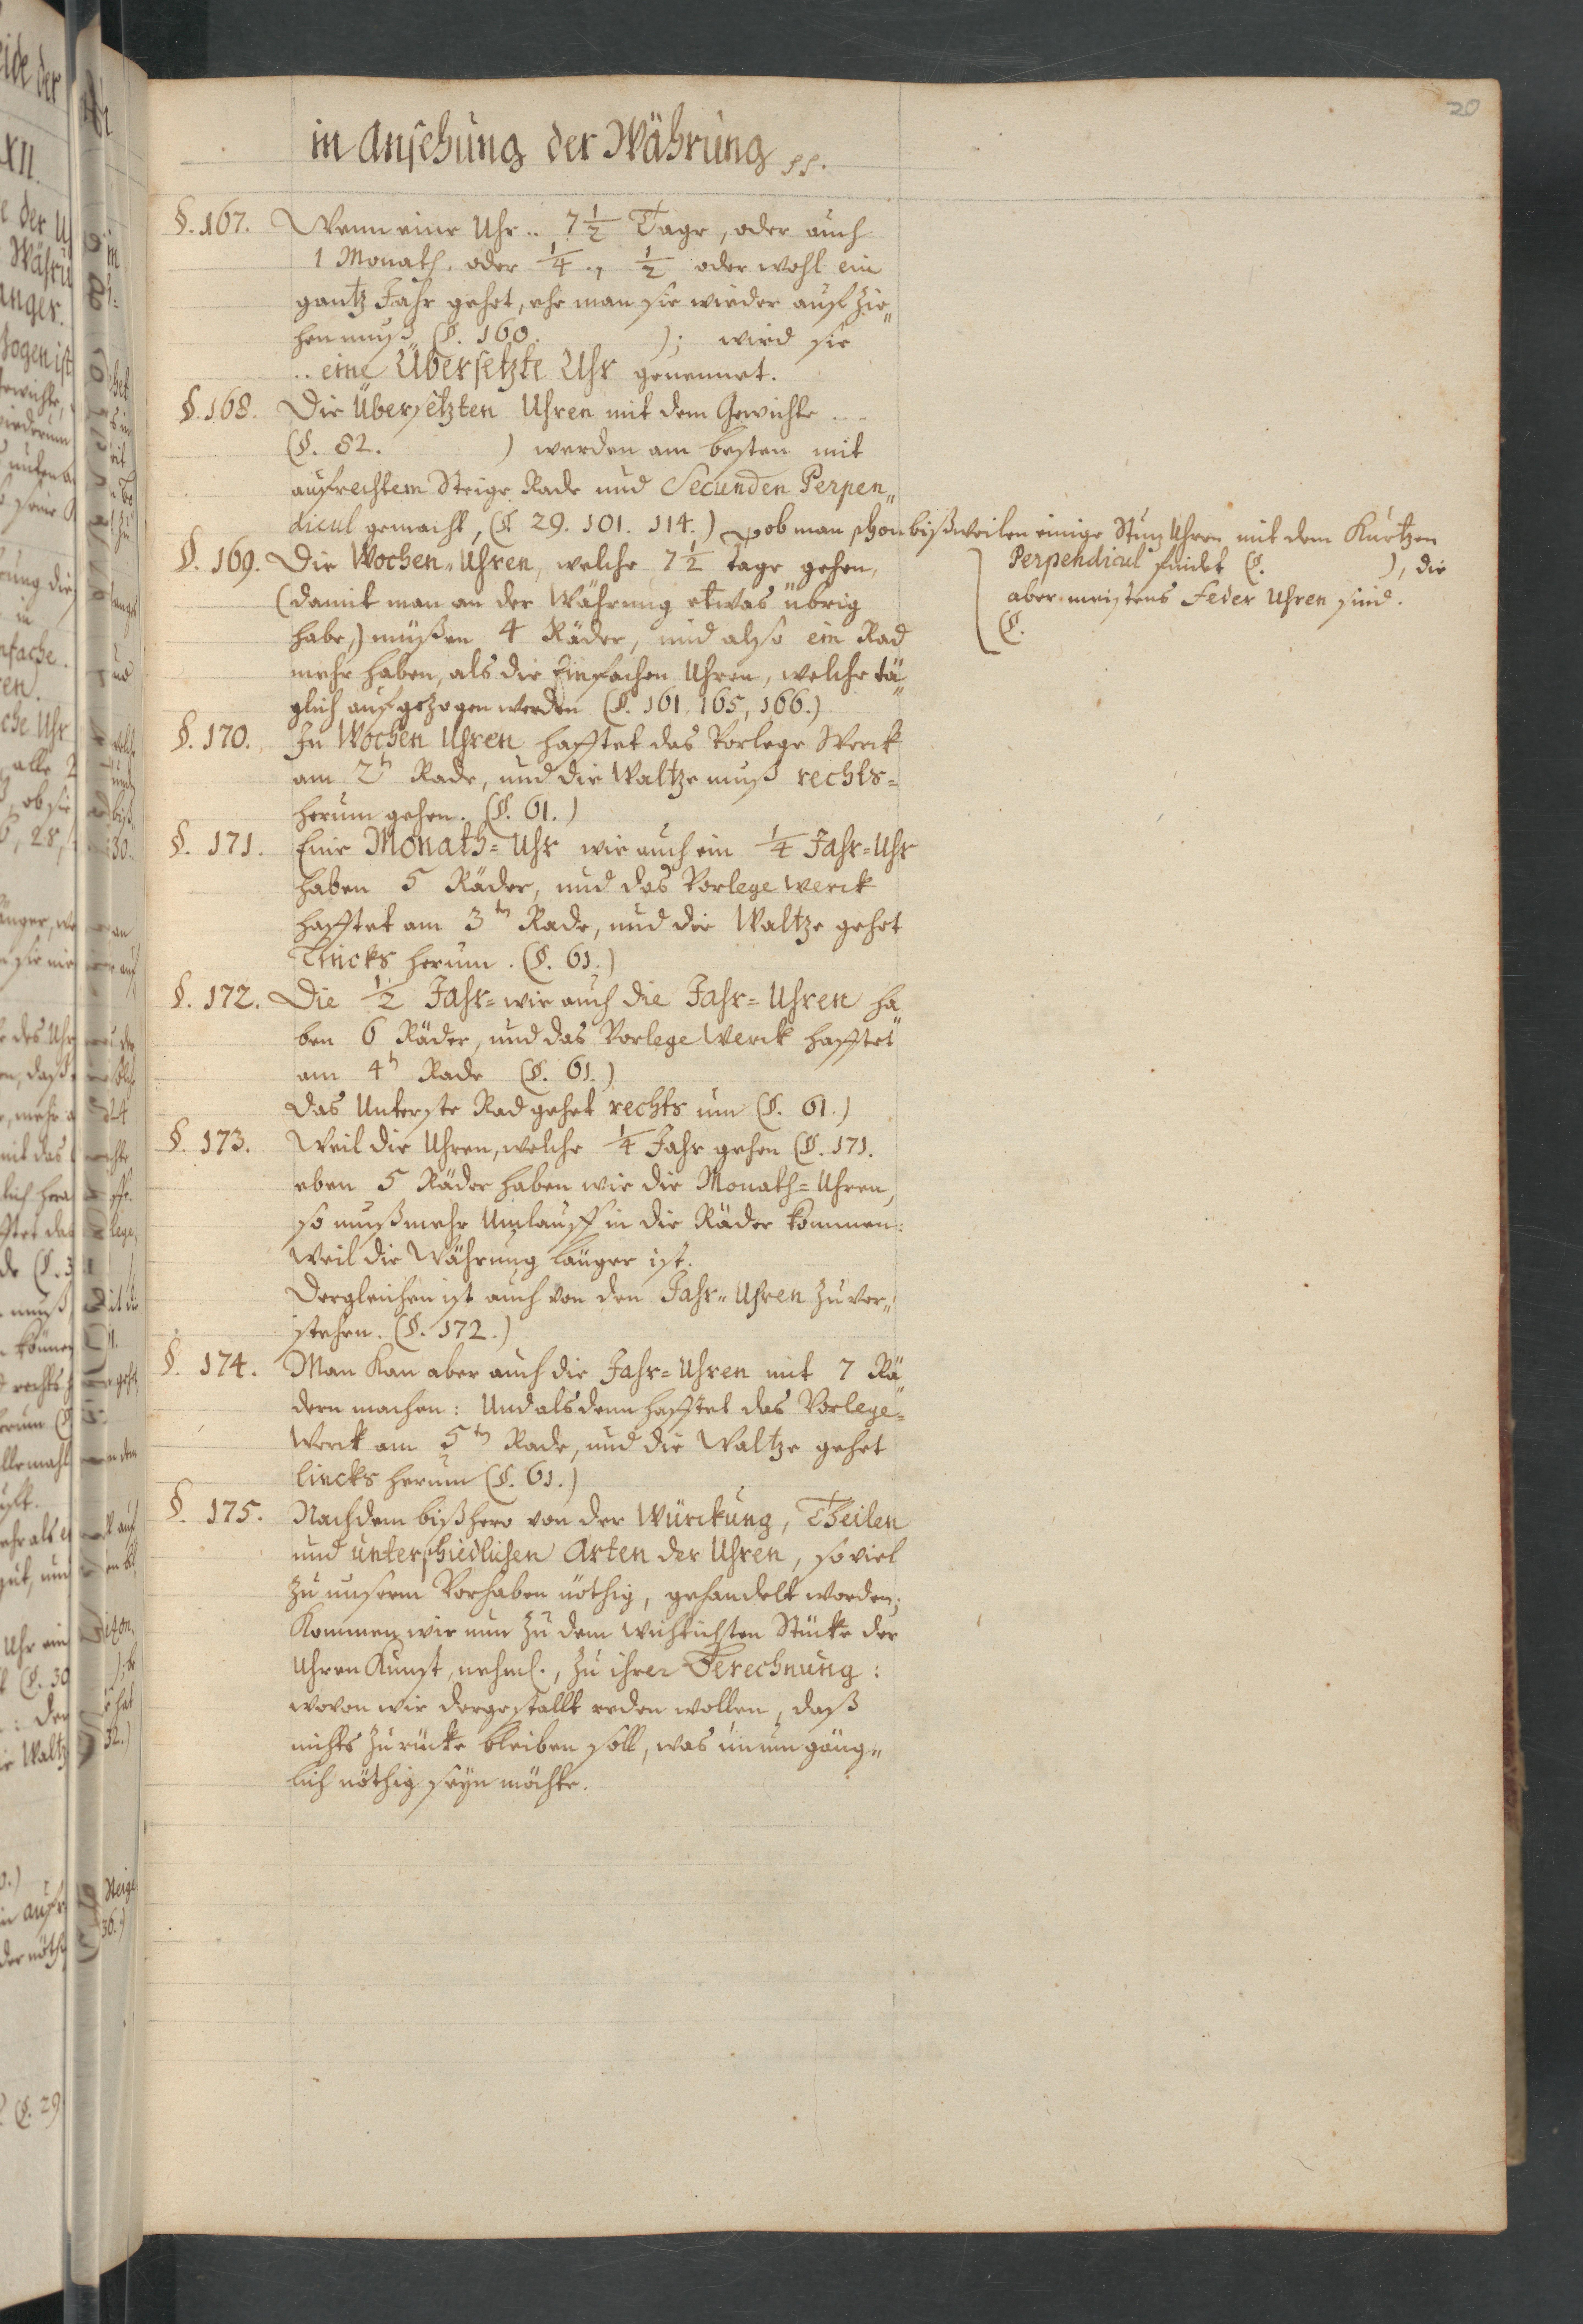 20
in Ansehung der Währung pp.
§. 167. Wenn eine Uhr .. 7 1/2 Tage, oder auch
1 Monath. oder 1/4 ., 1/2 oder wohl ein
gantz Jahr gehet, ehe man sie wieder auf zie„
hen muß (§. 160. ); wird sie
.. eine Übersetzte Uhr genennet.
§. 168. Die Übersetzten Uhren mit dem Gewichte ..
(§. 82. ) werden am besten mit
aufrechtem Steige Rade und Secunden Perpen„
dicul gemacht, (§. 29. 101. 114.) ob man schon bißweilen einige Stuz Uhren mit dem Kurtzen
Perpendicul findet (§. ), die
aber meistens Feder Uhren sind.
(§.
§. 169. Die Wochen„Uhren, welche 7 1/2 tage gehen,
(damit man an der Währung etwas übrig
habe,) müßen 4 Räder, und also ein Rad
mehr haben, als die Einfachen Uhren, welche tä„
glich aufgezogen werden (§. 161. 165, 166.)
§. 170. Zu Wochen Uhren hafftet das Vorlege Werck
am 2n Rade, und die Waltze muß rechts=
herum gehen. (§. 61.)
§. 171. Eine Monath=Uhr wie auch ein 1/4 Jahr=Uhr
haben 5 Räder, und das Vorlege Werck
hafftet am 3ten Rade, und die Waltze gehet
Lincks herum. (§. 61.)
§. 172. Die 1/2 Jahr= wie auch die Jahr=Uhren ha„
ben 6 Räder, und das Vorlege Werck hafftet
am 4n Rade (§. 61.)
Das Unterste Rad gehet rechts um (§. 61.)
§. 173. Weil die Uhren, welche 1/4 Jahr gehen (§. 171.
eben 5 Räder haben wie die Monath=Uhren,
so muß mehr Umlauff in die Räder kommen:
Weil die Währung länger ist.
Dergleichen ist auch von den Jahr„Uhren zu ver„
stehen. (§. 172.)
§. 174. Man kan aber auch die Jahr=Uhren mit 7 Rä„
dern machen: Und alsdenn hafftet das Vorlege=
Werck am 5ten Rade, und die Waltze gehet
lincks herum (§. 61.)
§. 175. Nachdem bißhero von der Würckung, Theilen
und unterschiedlichen Arten der Uhren, so viel
zu unserm Vorhaben nöthig, gehandelt worden;
Kommen wir nun zu dem wichtichsten Stücke der
Uhren Kunst, nehml., zu ihrer Berechnung:
wovon wir dergestallt reden wollen, daß
nichts zurücke bleiben soll, was unumgäng„
lich nöthig seyn möchte.